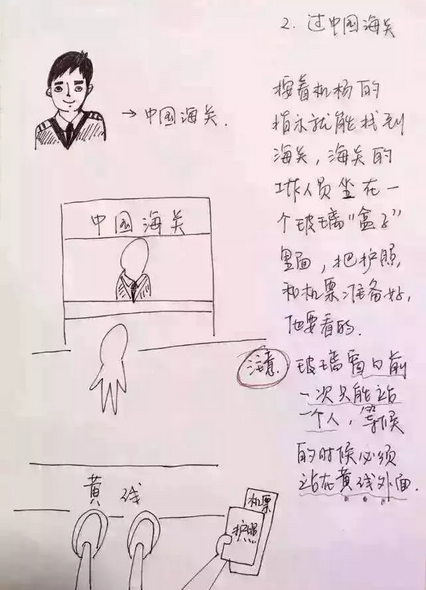 2. 过中国海关
→中国海关.
按着机场的
指示就能找到
海关,海关的
工作人员坐在一
个玻璃“盒子”
里面,把护照,
和机票准备好,
他要看的.
中国海关
注意. 玻璃窗口前
一次只能站
一个人,等候
的时候必须
站在黄线外面.
黄 线
机票
护照